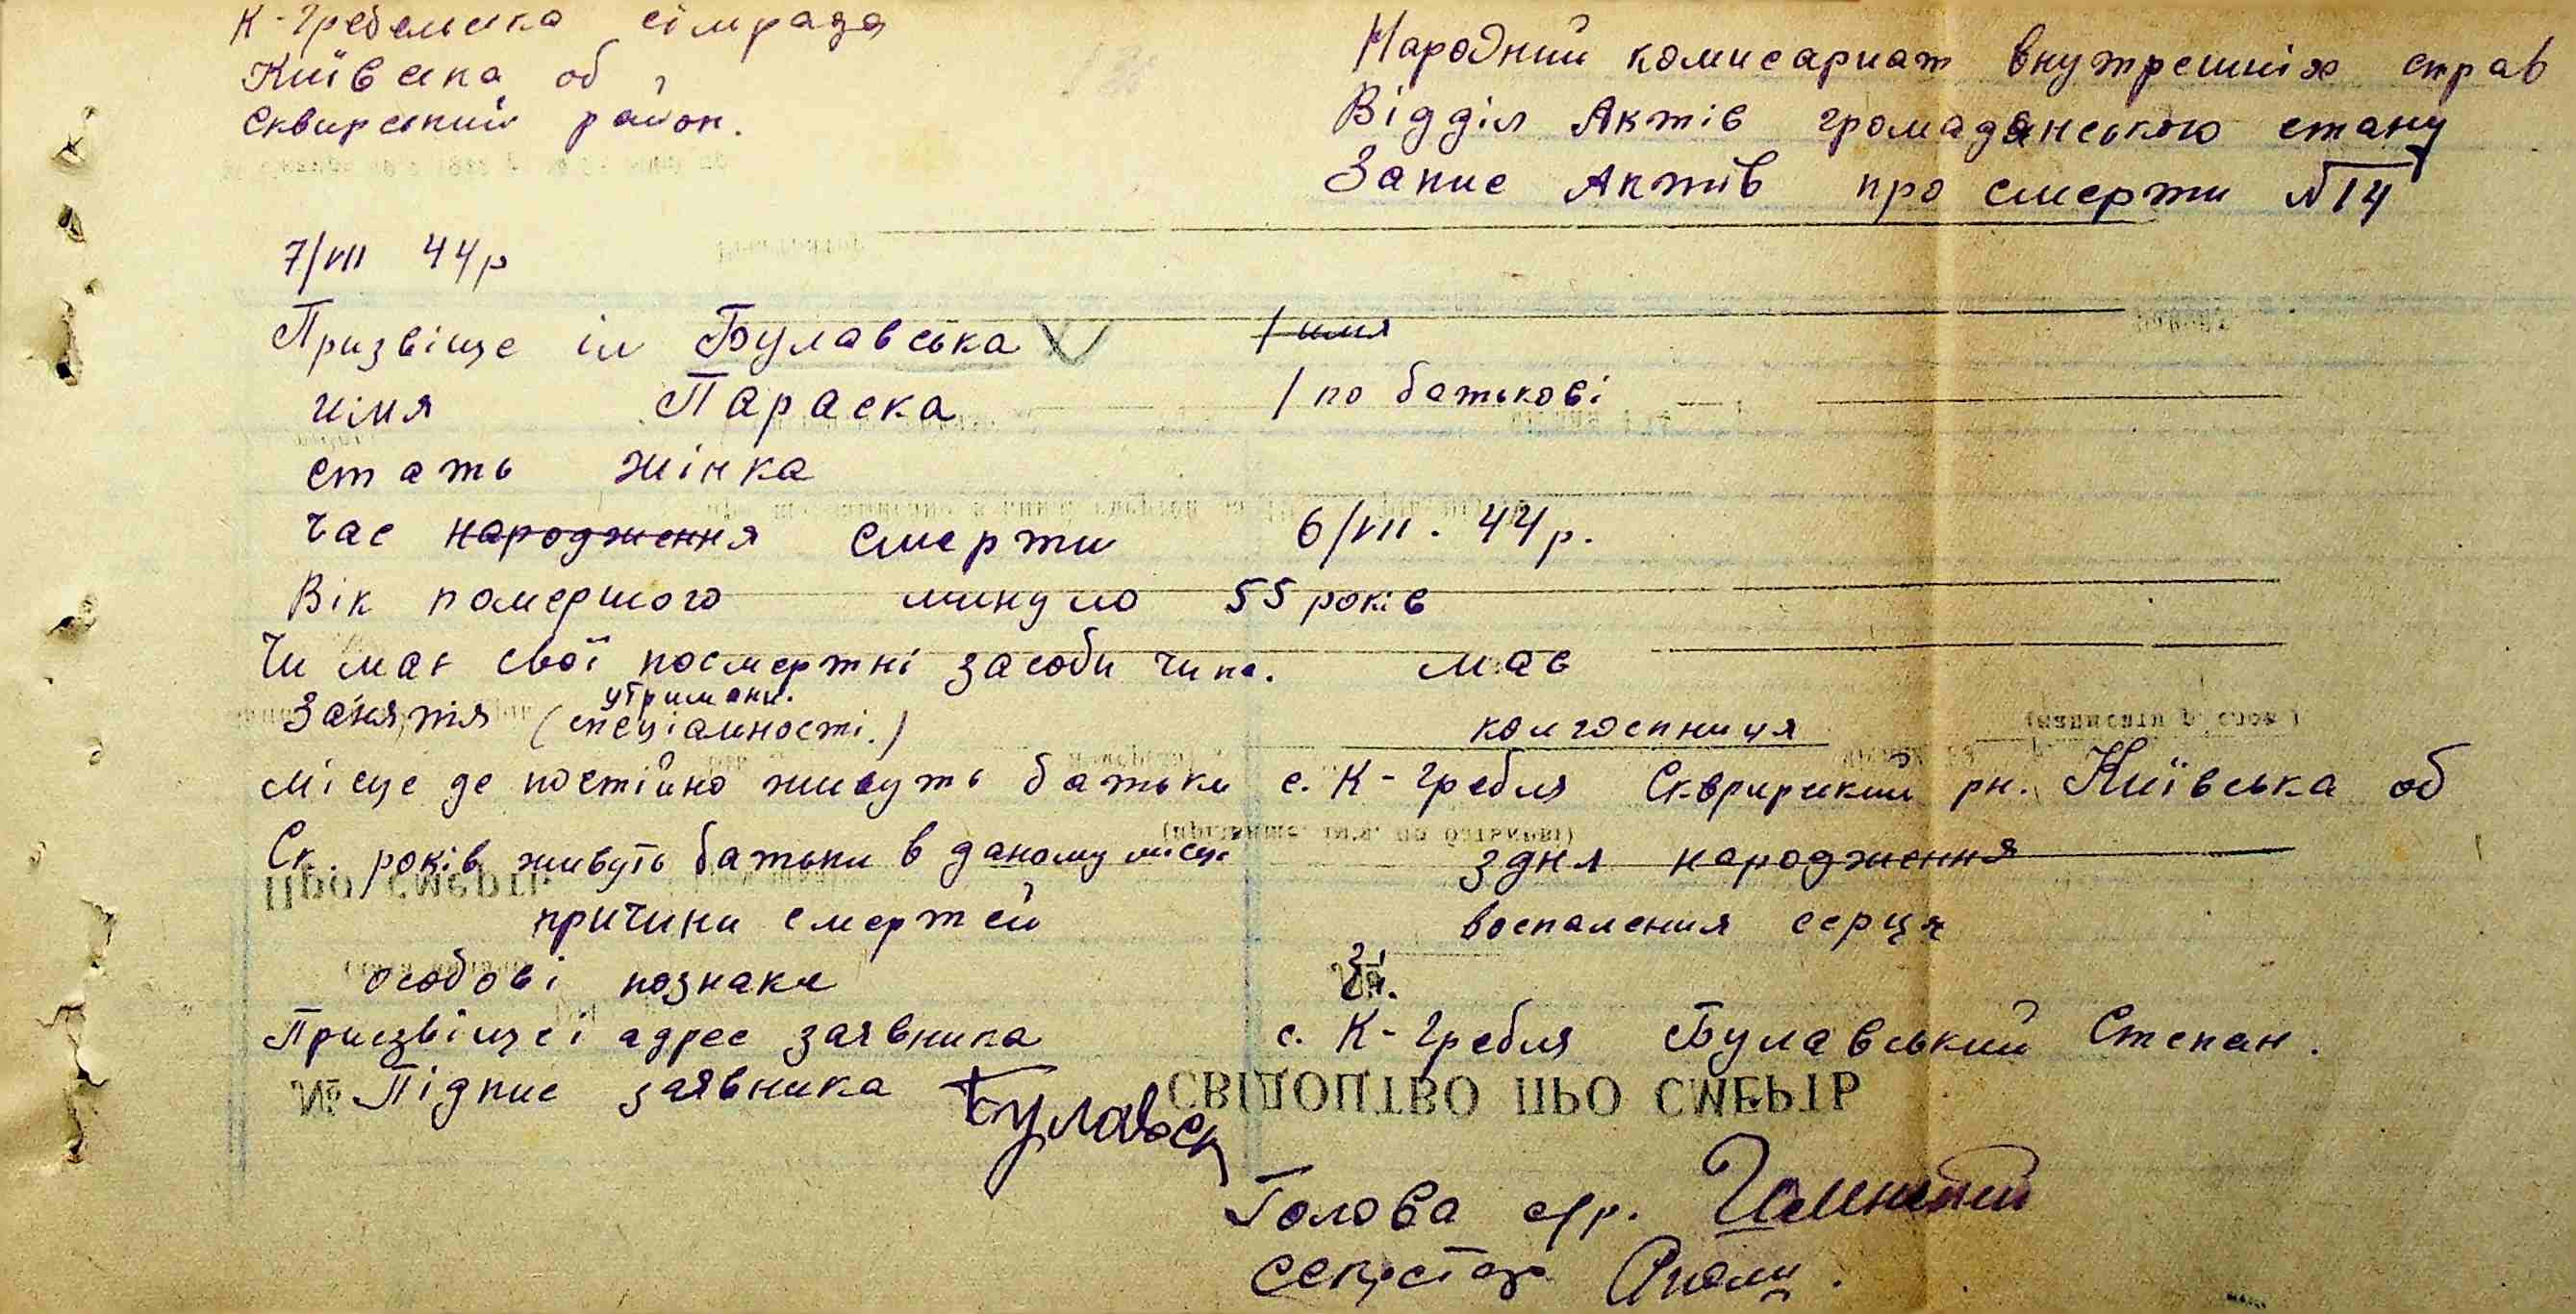 К-Гребельська сільрада
Київська об
Сквирський район.
Народний комисариат внутрешніх справ
Відділ Актів громадянського стану
Запис Актів про смерти №14
7/VII 44р
Призвіще ім Булавська / имя
имя Параска / по батькові
стать жінка
час народження смерти 6/VII. 44р.
Вік помершого минуло 55 років
Чи має свої посмертні засоби чи на. має
утриман.
Заняття (спеціальності.) колгоспниця
місце де постійно живуть батьки с. К-Гребля Скврирский рн. Київська об
Ск. років живуть батьки в даному місці з дня народження
причини смертей воспаления серця
особові познаки
Призвіще і адрес заявника с. К-Гребля Булавський Степан.
Підпис заявника Булавск
СВІДОЦТВО ПРО СМЕРТЬ
Голова с/р.
секретар